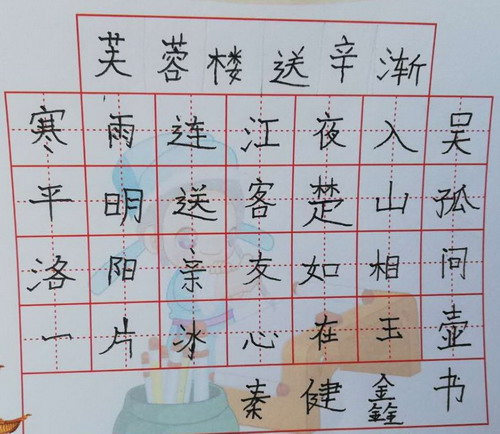 芙蓉楼送辛渐
寒雨连江夜入吴
平明送客楚山孤
洛阳亲友如相问
一片冰心在玉壶
秦健鑫书